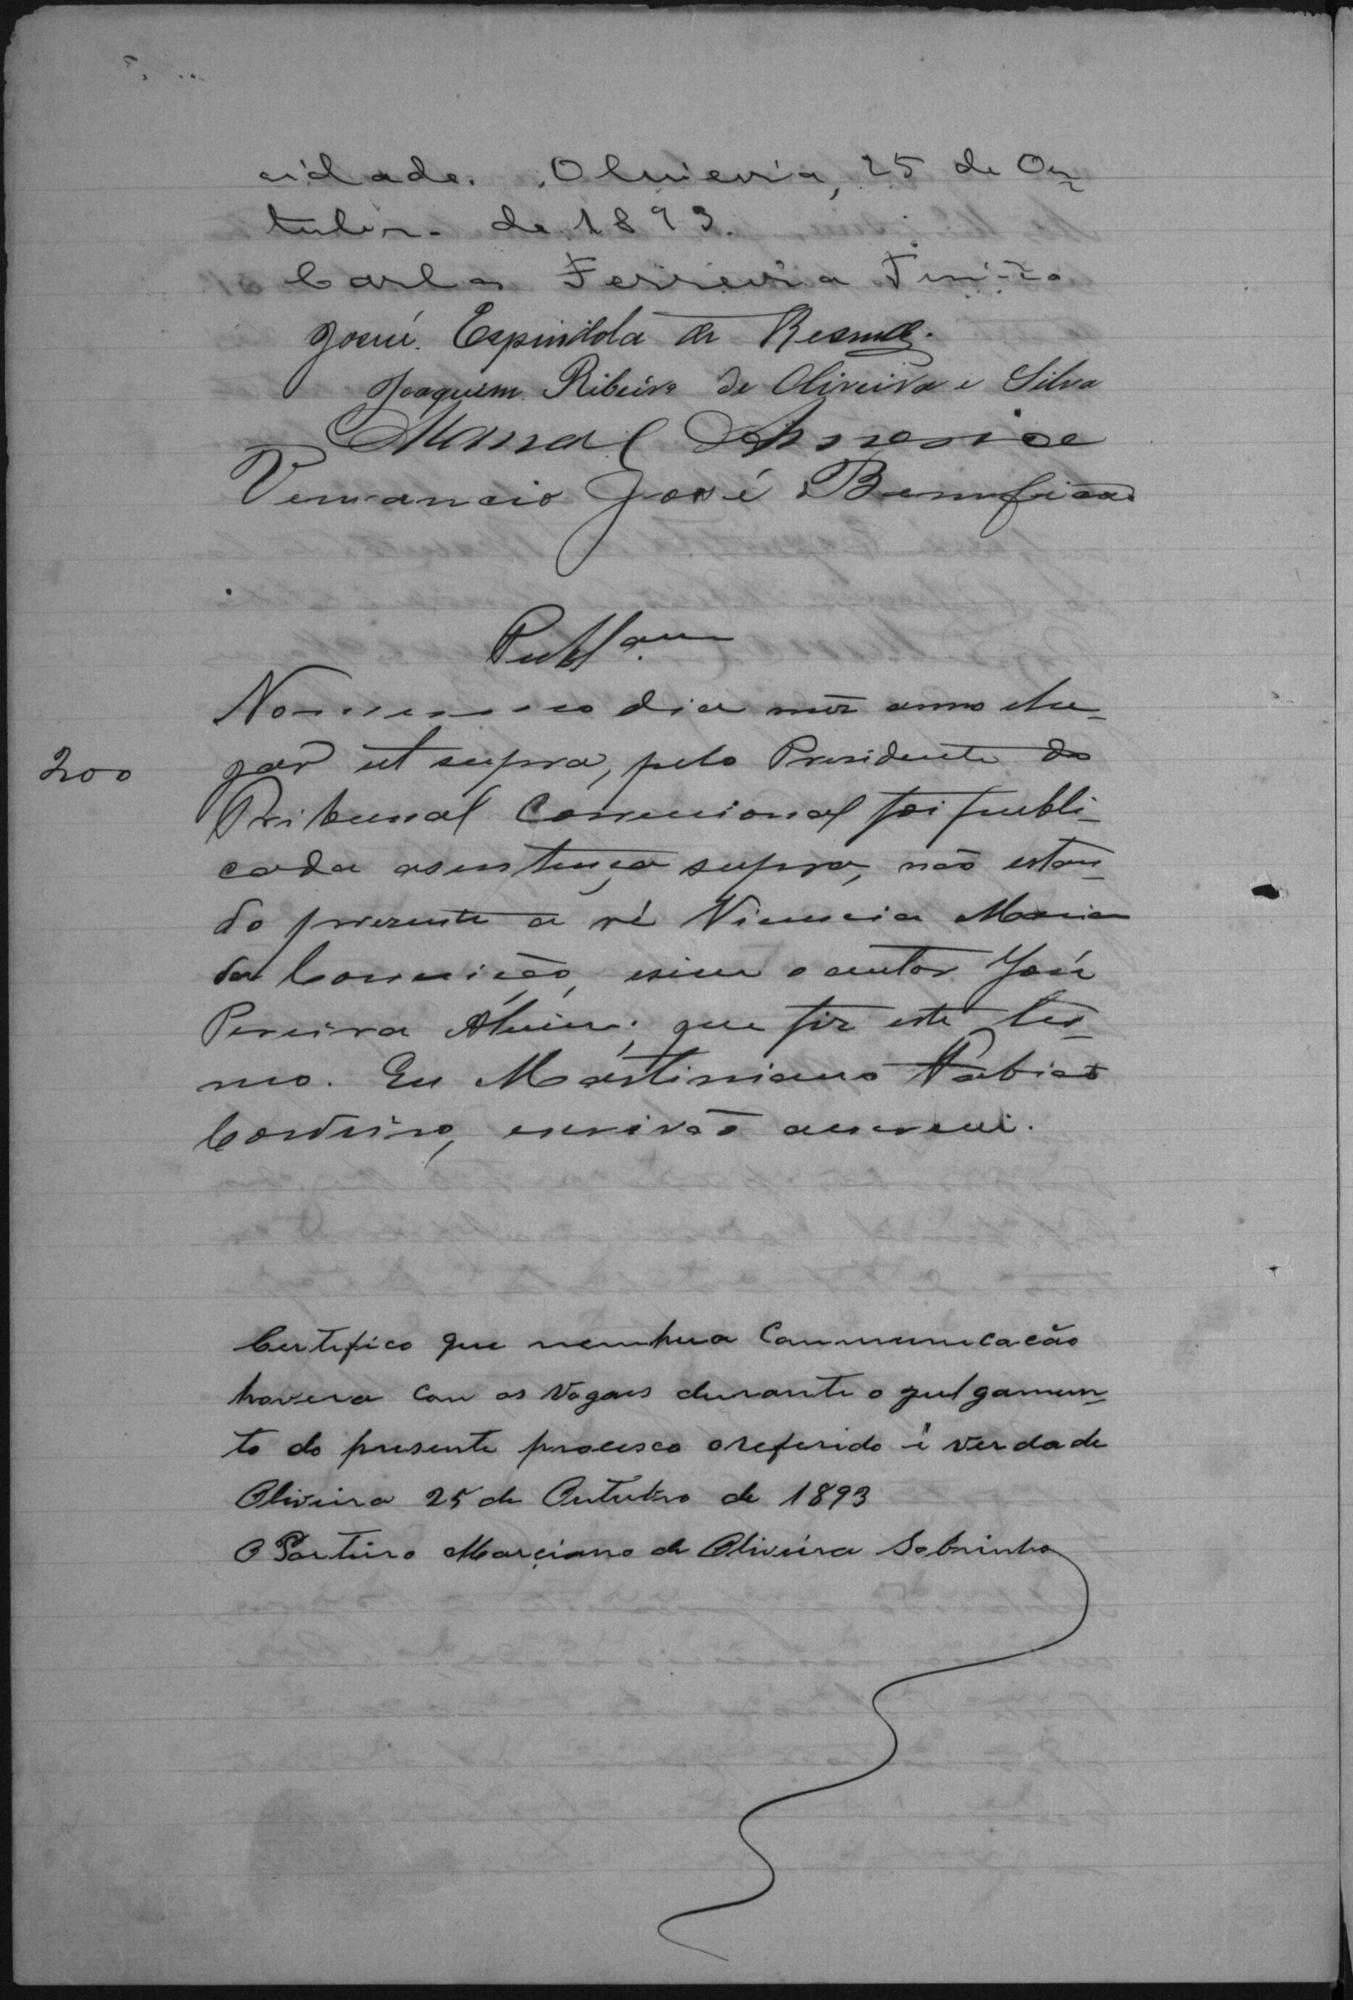 cidade. Oliveira, 25 de Ou
tubro de 1893.
Carlos Ferreira
José Espindola de Resende.
Joaquim Ribeiro de Oliveira e Silva
Manoel
Venancio José Bemfica
Publ.am
No mesmo dia mez anno e lu-
gar ut supra, pelo Presidente do
200
Tribunal Correcional foi publi-
cada a sentença supra, não estan-
do prezente a ré Vicencia Maria
da Conceição, e sim o autor José
Pereira que fiz este ter-
mo. Eu Martiniano
Cordeiro, escrivão escrevi.
Certifico que nenhua Communicacão
hovera con os Vogaes durante o gulgamen-
to do presente processo o referido é verdade
Oliveira 25 de Outubro de 1893
O Porteiro Marciano de Oliveira Sobrinho